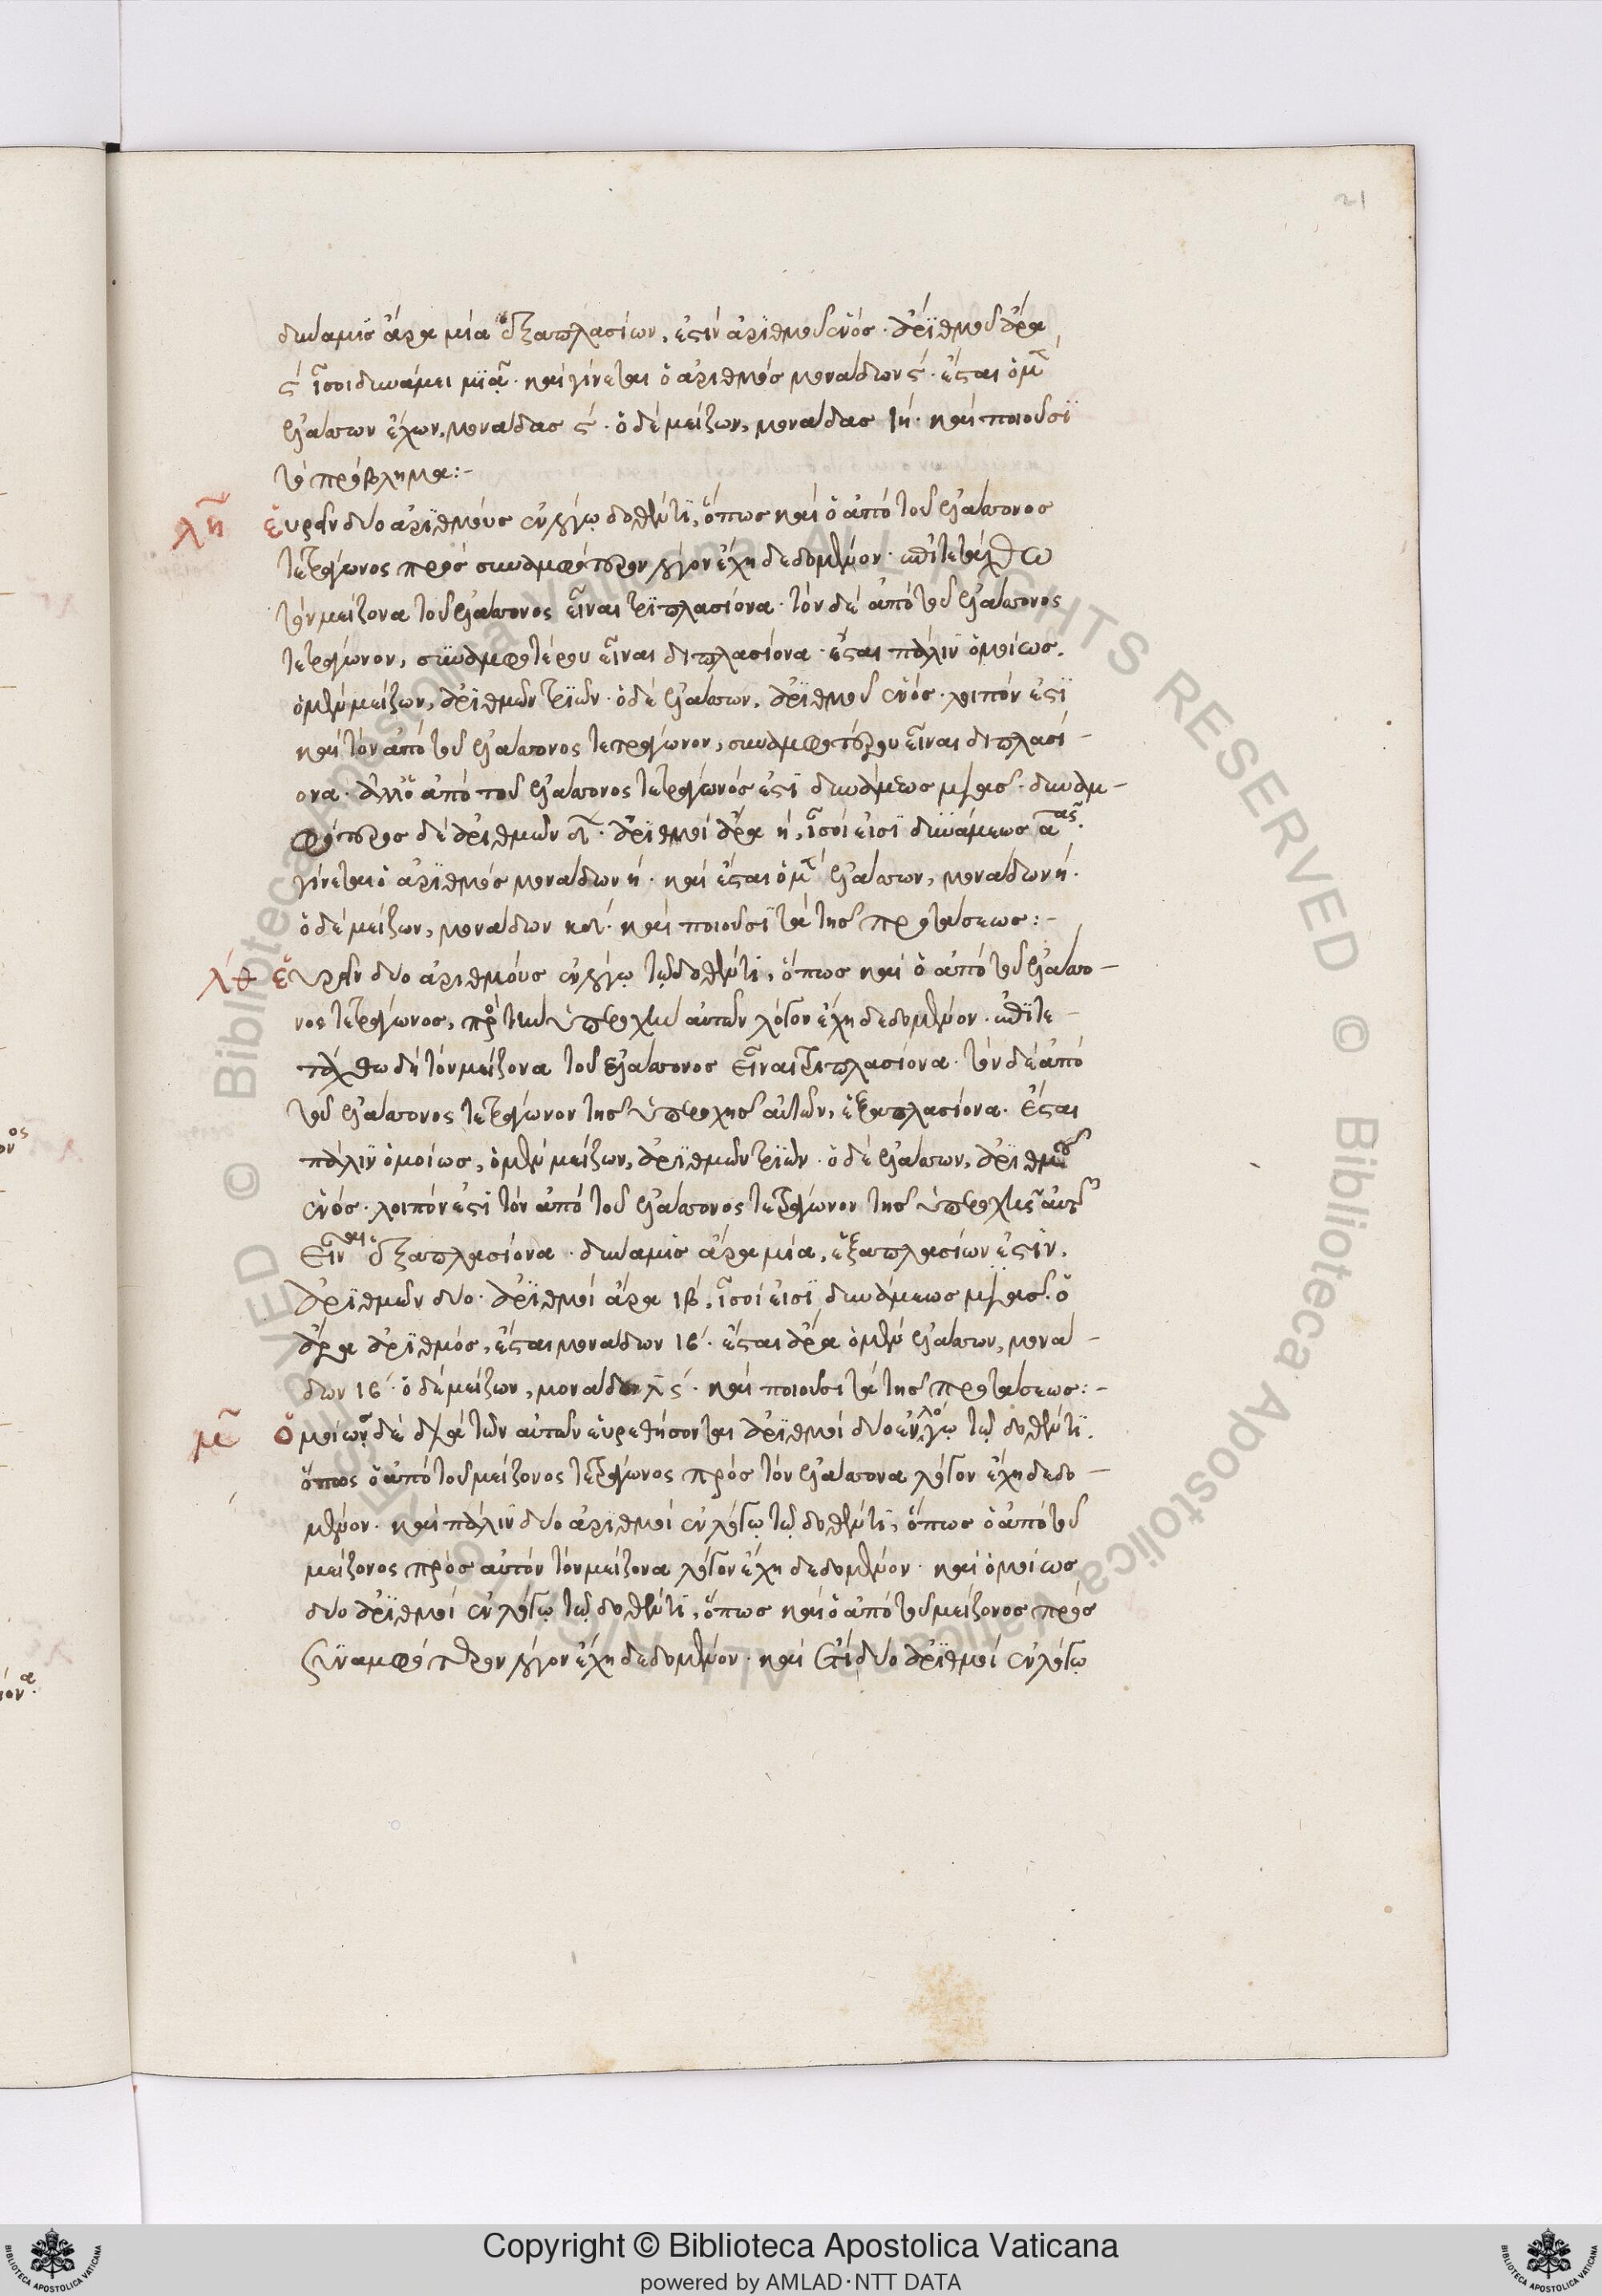 21
δύναμις ἄρα μία ἑξαπλασίων, ἐστὶν ἀριθμοῦ ἑνός· ἀριθμοὶ ἄρα
ϛ ἴσοι δυνάμει μιᾷ· καὶ γίνεται ὁ ἀριθμός μονάδων ϛ· ἔσται ὁ μὲν
ἐλάττων ἔχων, μονάδας ϛ· ὁ δέ μείζων, μονάδας ιη· καὶ ποιοῦσι
τό πρόβλημα:-
λη εὑρεῖν δύο ἀριθμούς ἐν λόγῳ δοθέντι, ὅπως καί ὁ ἀπό τοῦ ἐλάττονος
τετράγωνος πρός συναμφότερον λόγον ἔχη δεδομένον· ἐπιτετάχθω
τόν μείζονα τοῦ ἐλάττονος εἶναι τριπλασίονα· τόν δέ ἀπό τοῦ ἐλάττονος
τετράγωνον, συναμφοτέρου εἶναι διπλασίονα· ἔσται πάλιν ὁμοίως,
ὁ μέν μείζων, ἀριθμῶν τριῶν· ὁ δέ ἐλάττων, ἀριθμοῦ ἑνός· λοιπόν ἐστὶ
καί τόν ἀπό τοῦ ἐλάττονος τετράγωνον, συναμφοτέρου εἶναι διπλασί-
ονα· ἀλλ' ὁ ἀπό τοῦ ἐλάττονος τετράγωνός ἐστι δυνάμεως μιᾶς· συναμ-
φότερος δέ ἀριθμῶν δ· ἀριθμοί ἄρα η, ἴσοι εἰσὶ δυνάμεως αας.
γίνεται ὁ ἀριθμός μονάδων η· καί ἔσται ὁ μὲν ἐλάττων, μονάδων η·
ὁ δέ μείζων, μονάδων κδ· καί ποιοῦσι τά τῆς προτάσεως:-
λθ εὑρεῖν δύο ἀριθμούς ἐν λόγῳ τῷ δοθέντι, ὅπως καί ὁ ἀπό τοῦ ἐλάττο-
νος τετράγωνος, πρὸς τὴν ὑπεροχὴν αὐτῶν λόγον ἔχη δεδομένον· ἐπιτε-
τάχθω δή τόν μείζονα τοῦ ἐλάττονος εἶναι τριπλασίονα· τόν δέ ἀπό
τοῦ ἐλάττονος τετράγωνον τῆς ὑπεροχῆς αὐτῶν, ἑξαπλασίονα· ἔσται
πάλιν ὁμοίως, ὁ μέν μείζων, ἀριθμῶν τριῶν· ὁ δέ ἐλάττων, ἀριθμοῦ
ἑνός· λοιπόν ἐστι τόν ἀπό τοῦ ἐλάττονος τετράγωνον τῆς ὑπεροχῆς αὐτῶν
εἶναι ἑξαπλασίονα· δύναμις ἄρα μία, ἑξαπλασίων ἐστίν,
ἀριθμῶν δύο· ἀριθμοί ἄρα ιβ, ἴσοι εἰσὶ δυνάμεως μιᾶς· ὁ
ἄρα ἀριθμός, ἔσται μονάδων ιβ· ἔσται ἄρα ὁ μέν ἐλάττων, μονά-
δων ιβ· ὁ δέ μείζων, μονάδων λϛ· καί ποιοῦσι τά τῆς προτάσεως:-
μ Ὁμοίως δέ διά τῶν αὐτῶν εὑρεθήσονται ἀριθμοί δύο ἐν λόγῳ τῷ δοθέντι.
ὅπως ὁ ἀπό τοῦ μείζονος τετράγωνος πρός τόν ἐλάττονα λόγον ἔχη δεδο-
μένον· καί πάλιν δύο ἀριθμοί ἐν λόγῳ τῷ δοθέντι, ὅπως ὁ ἀπό τοῦ
μείζονος πρός αὐτόν τόν μείζονα λόγον ἔχη δεδομένον· καί ὁμοίως
δύο ἀριθμοί ἐν λόγῳ τῷ δοθέντι, ὅπως καί ὁ ἀπό τοῦ μείζονος πρός
συναμφότερον λόγον ἔχη δεδομένον· καί ἔτι δύο ἀριθμοί ἐν λόγῳ
Copyright © Biblioteca Apostolica Vaticana
powered by AMLAD·NTT DATA